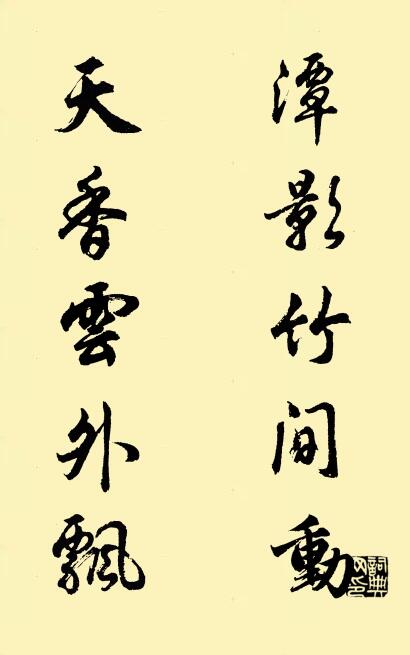 潭影竹间動
天香雲外飄